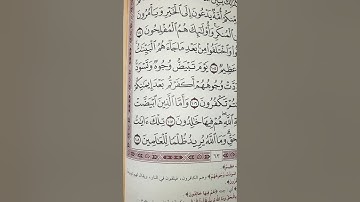 مِّنكُمْ أُمَّةٌ يَدْعُونَ إِلَى ٱلْخَيْرِ وَيَأْمُرُونَ
ٱلْمُنكَرِ وَأُو۟لَٰٓئِكَ هُمُ ٱلْمُفْلِحُونَ ١٠٤
وا۟ وَٱخْتَلَفُوا۟ مِنۢ بَعْدِ مَا جَآءَهُمُ ٱلْبَيِّنَٰتُ
عَظِيمٌ ١٠٥ يَوْمَ تَبْيَضُّ وُجُوهٌ وَتَسْوَدُّ
ودَّتْ وُجُوهُهُمْ أَكَفَرْتُم بَعْدَ إِيمَٰنِكُمْ
تُمْ تَكْفُرُونَ ١٠٦ وَأَمَّا ٱلَّذِينَ ٱبْيَضَّتْ
ةِ ٱللَّهِ هُمْ فِيهَا خَٰلِدُونَ ١٠٧ تِلْكَ ءَايَٰتُ
حَقِّ وَمَا ٱللَّهُ يُرِيدُ ظُلْمًا لِّلْعَٰلَمِينَ
٦٣